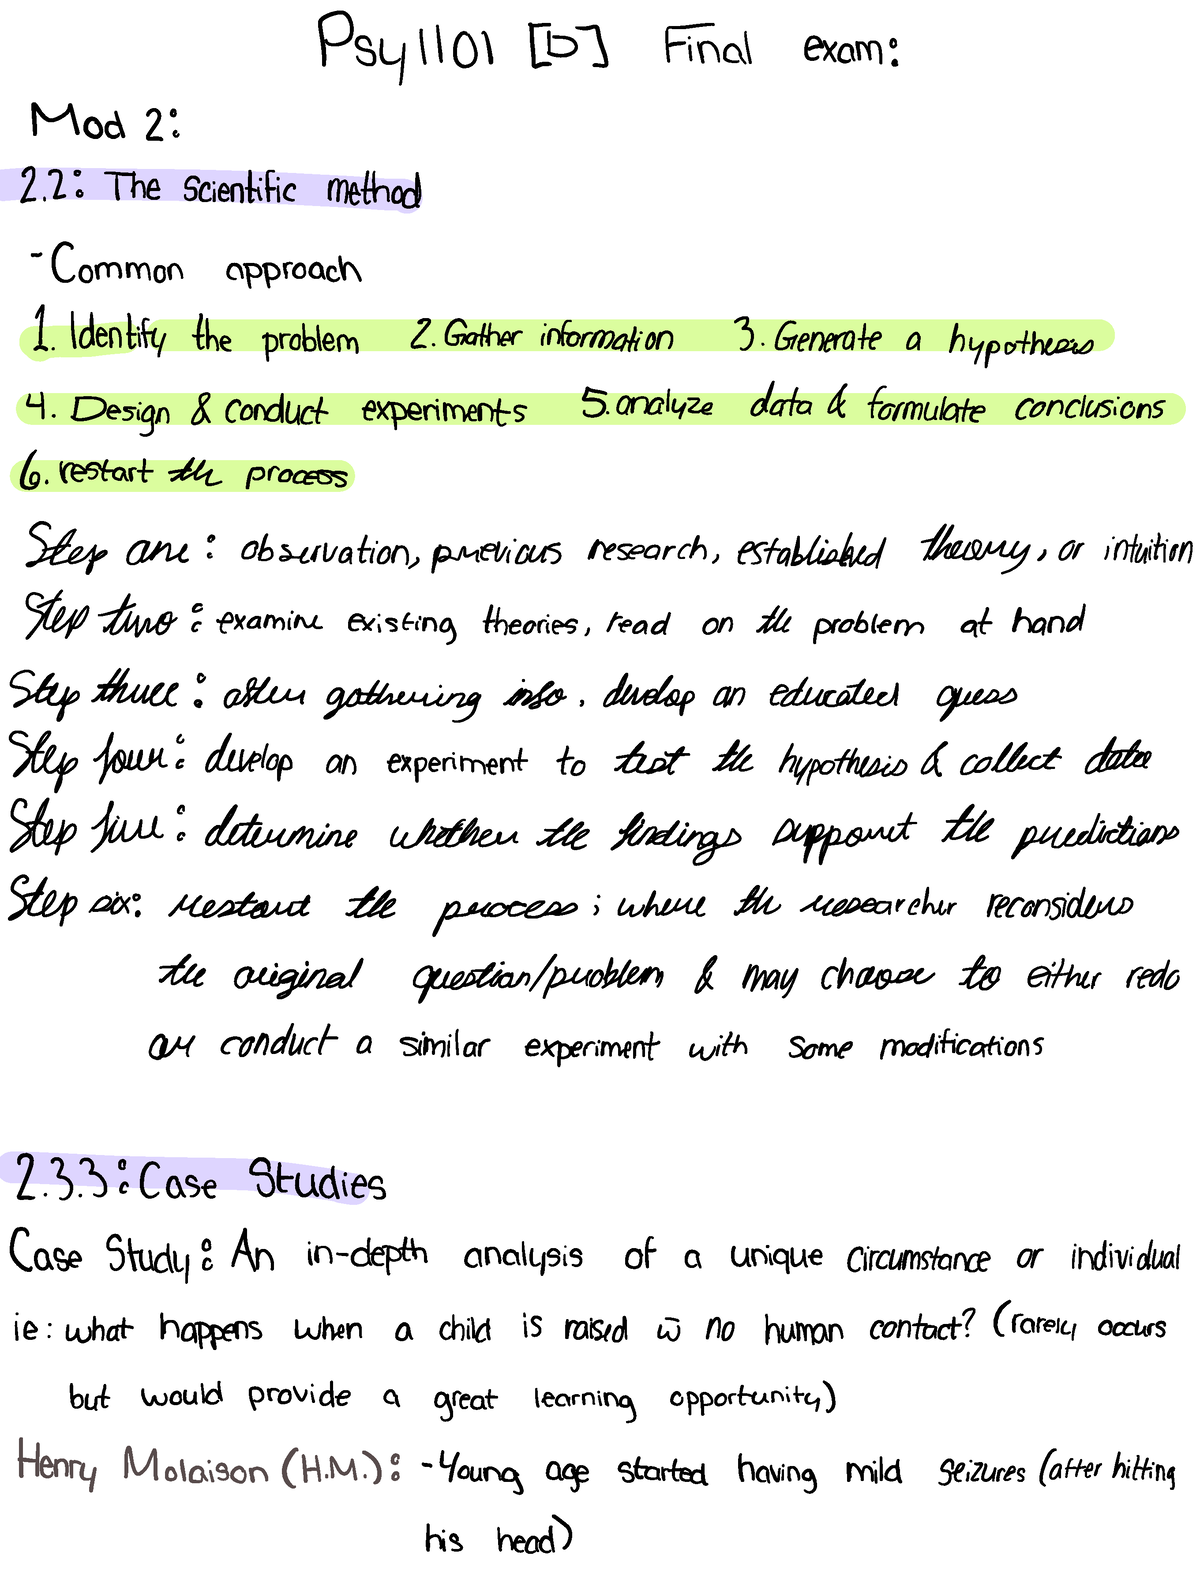 Psy1101 [D] Final exam:
Mod 2:
2.2: The Scientific method
- Common approach
1. Identify the problem 2. Gather information 3. Generate a hypothesis
4. Design & conduct experiments 5. analyze data & formulate conclusions
6. restart the process
Step one: observation, previous research, established theory, or intuition
Step two: examine existing theories, read on the problem at hand
Step three: after gathering info, develop an educated guess
Step four: develop an experiment to test the hypothesis & collect data
Step five: determine whether the findings support the predictions
Step six: restart the process; where the researcher reconsiders
the original question/problem & may choose to either redo
or conduct a similar experiment with some modifications
2.3.3: Case Studies
Case Study: An in-depth analysis of a unique circumstance or individual
ie: what happens when a child is raised w̄ no human contact? (rarely occurs
but would provide a great learning opportunity)
Henry Molaison (H.M.): - Young age started having mild seizures (after hitting
his head)